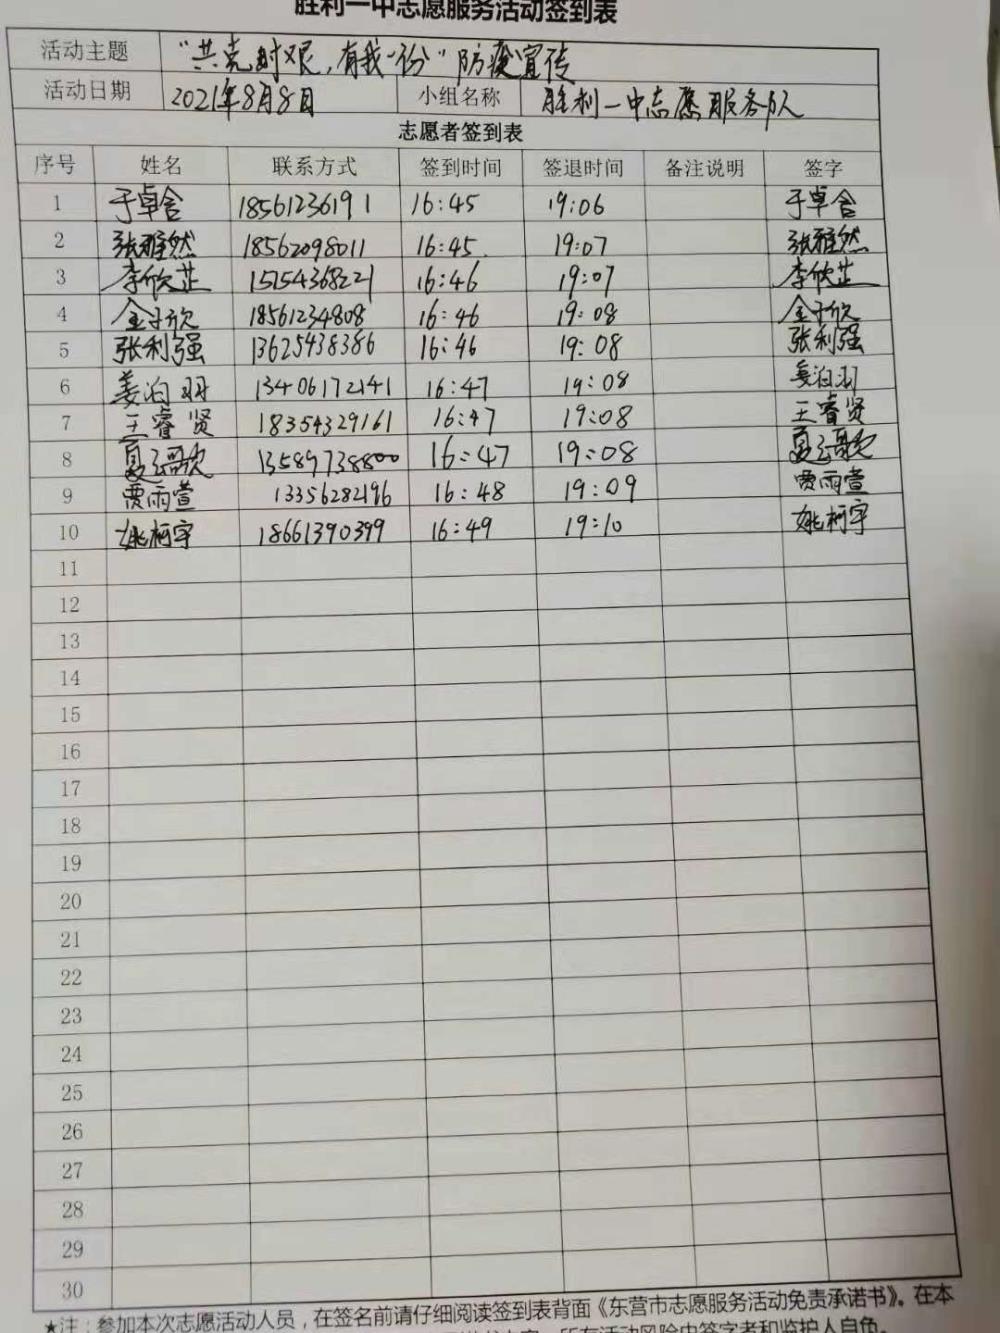 胜利一中志愿服务活动签到表
活动主题 “共克时艰,有我一份”防疫宣传
活动日期 2021年8月8日 小组名称 胜利一中志愿服务队
志愿者签到表
序号 姓名 联系方式 签到时间 签退时间 备注说明 签字
1 于卓含 18561236191 16:45 19:06 于卓含
2 张雅然 18562098011 16:45 19:07 张雅然
3 李欣芷 15154368221 16:46 19:07 李欣芷
4 金子欣 18561234808 16:46 19:08 金子欣
5 张利强 13625438386 16:46 19:08 张利强
6 姜泊羽 13406172141 16:47 19:08 姜泊羽
7 王睿贤 18354329161 16:47 19:08 王睿贤
8 夏子歌 13589738800 16:47 19:08 夏子歌
9 贾雨萱 13356282196 16:48 19:09 贾雨萱
10 姚柯宇 18661390399 16:49 19:10 姚柯宇
11
12
13
14
15
16
17
18
19
20
21
22
23
24
25
26
27
28
29
30
★注:参加本次志愿活动人员,在签名前请仔细阅读签到表背面《东营市志愿服务活动免责承诺书》。在本
所有活动风险由签字者和监护人自负。